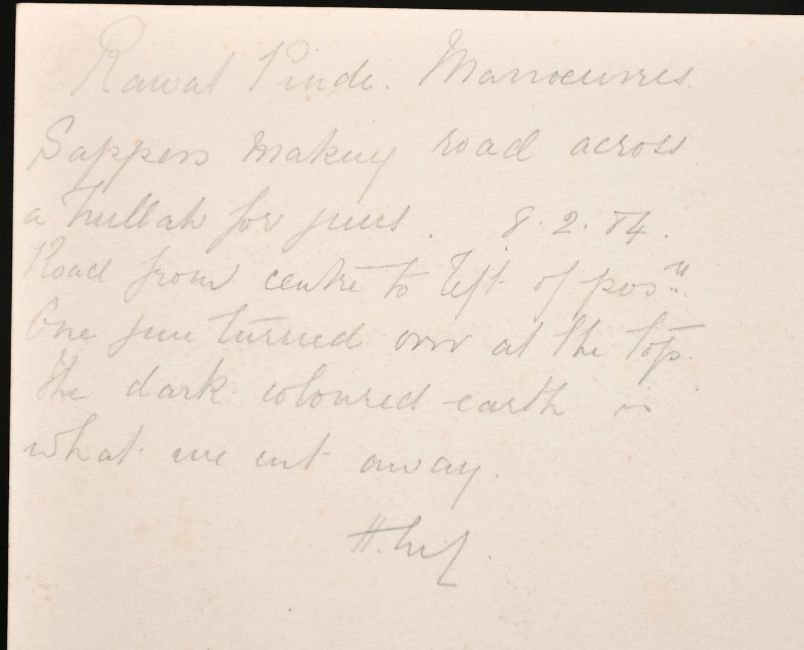 Rawal Pindi. Manoeuvres.
Sappers making road across
a nullah for guns. 8.2.84.
Road from centre to left of posn.
One gun turned over at the top.
The dark coloured earth is
what we cut away.